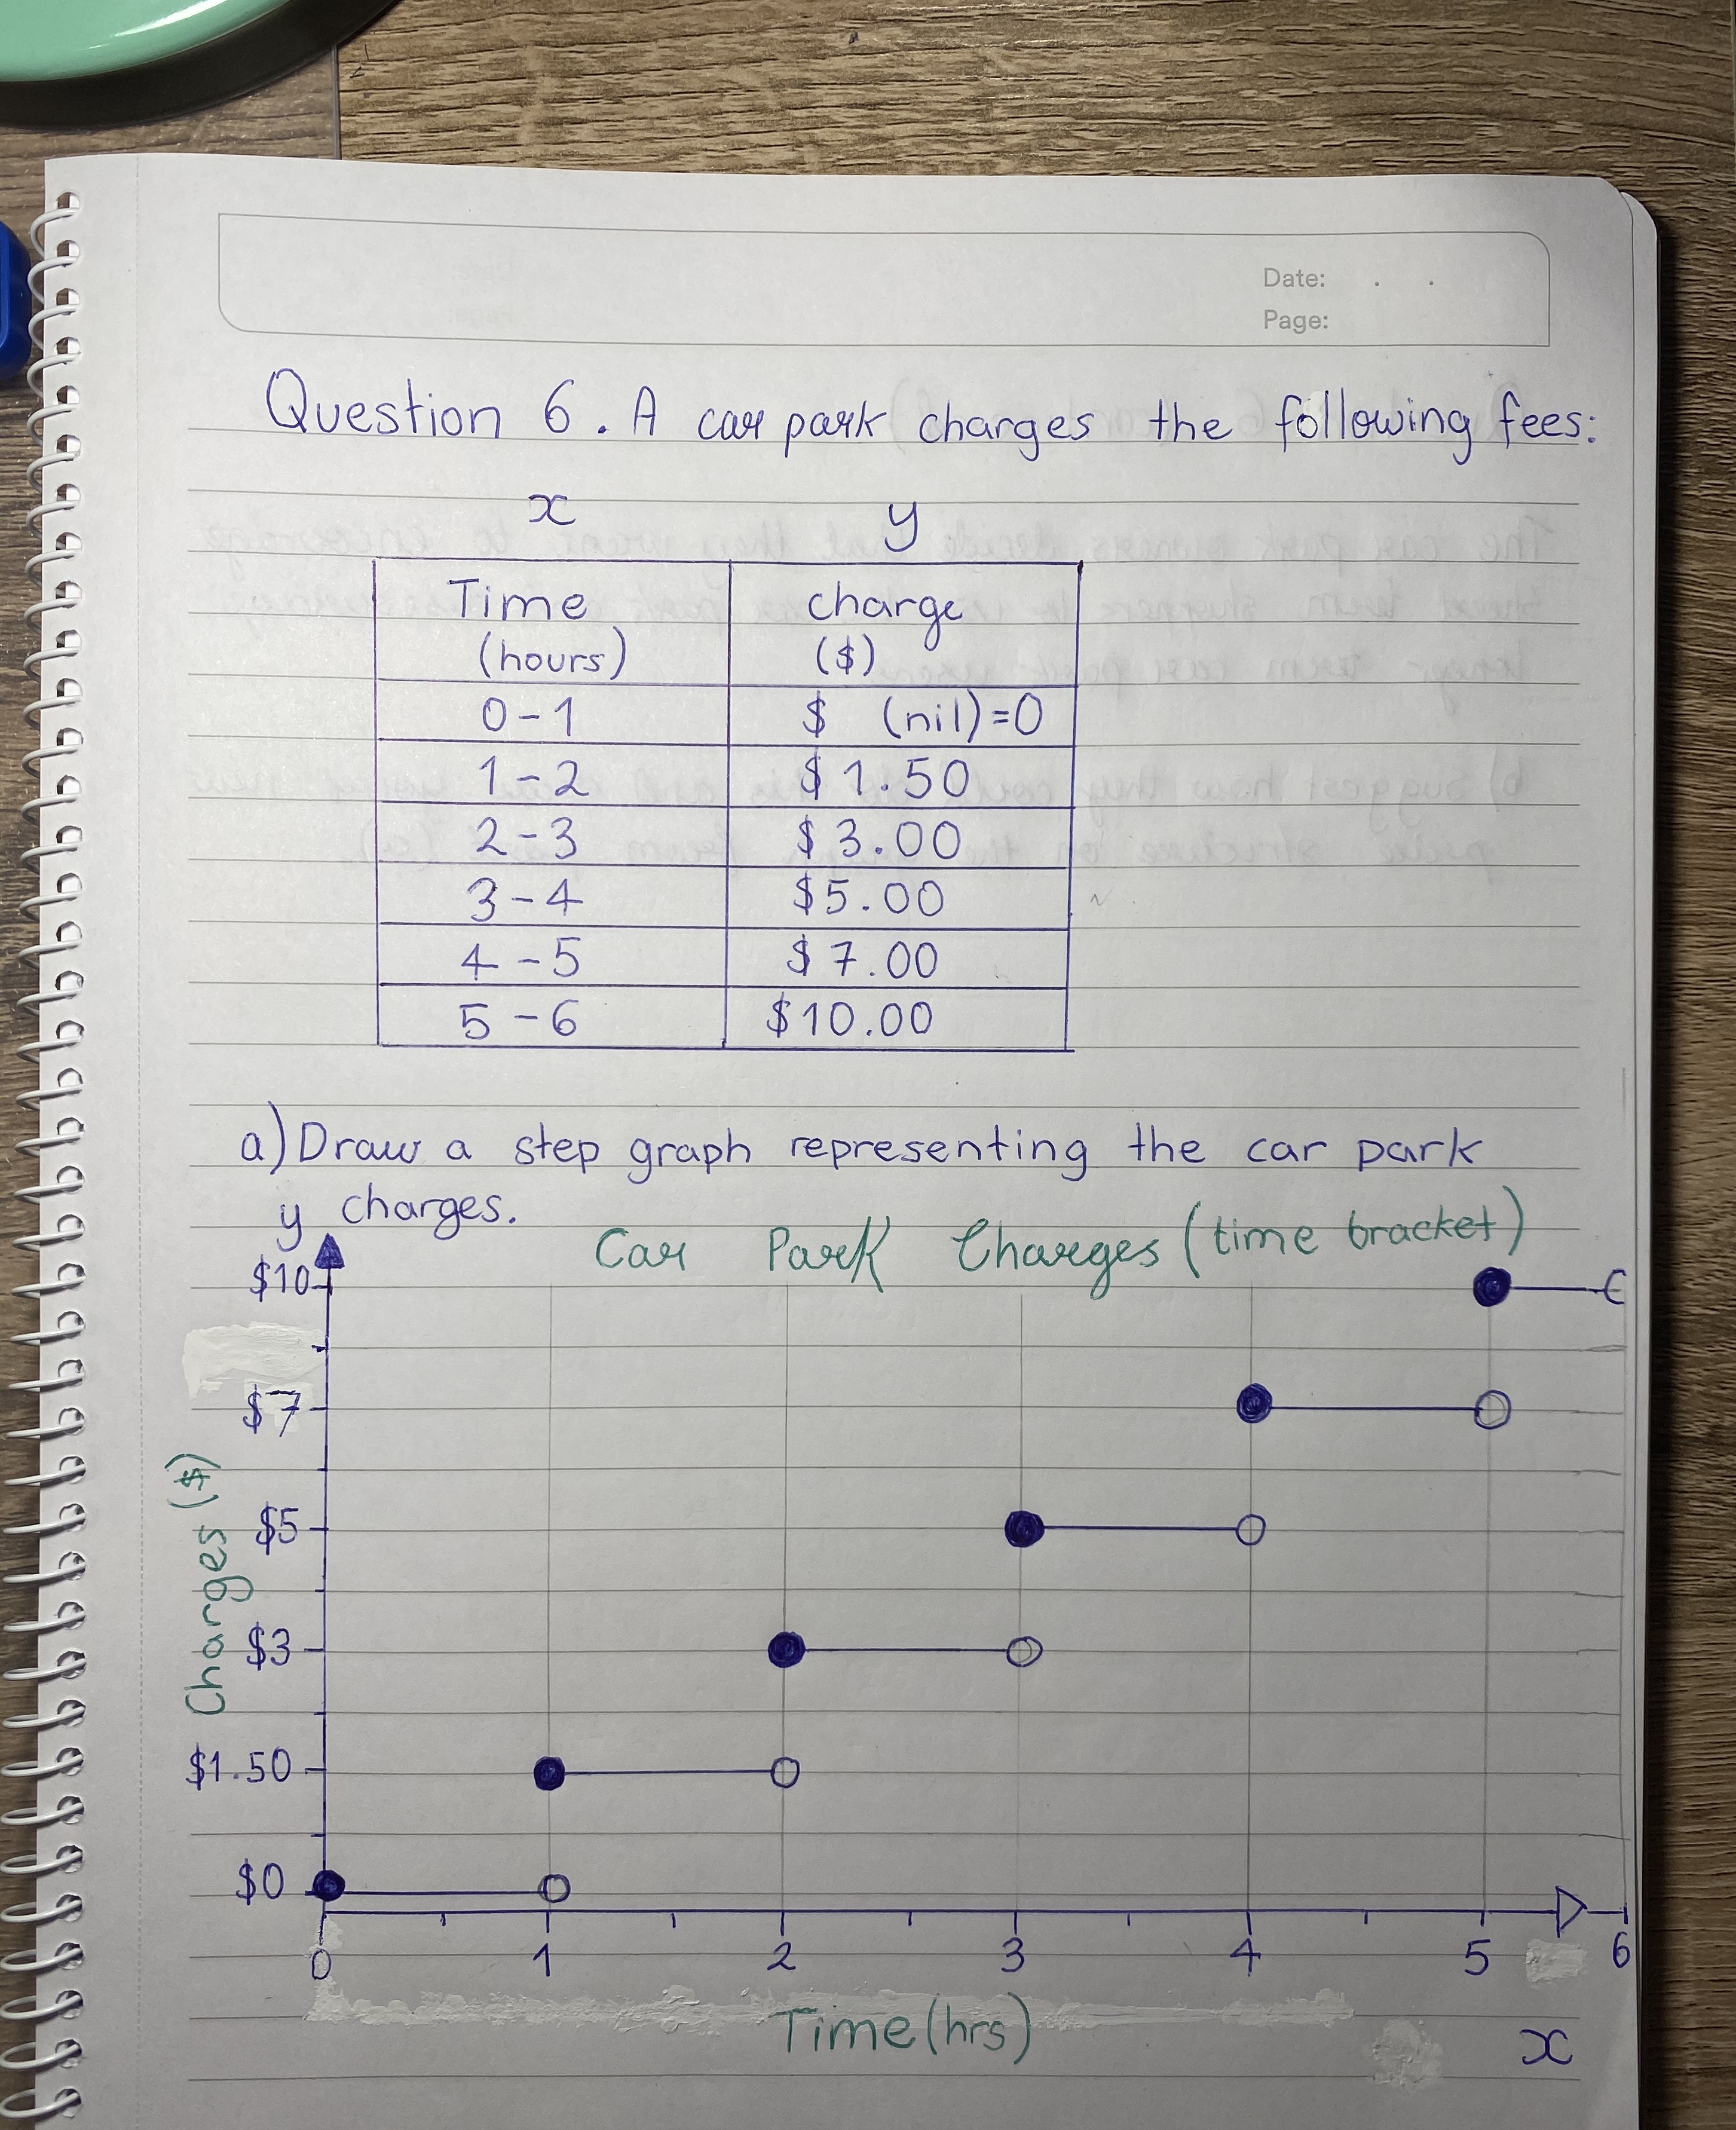 Date: . .
Page:
Question 6. A car park charges the following fees:
x y
Time (hours) charge ($)
0-1 $ (nil)=0
1-2 $1.50
2-3 $3.00
3-4 $5.00
4-5 $7.00
5-6 $10.00
a) Draw a step graph representing the car park
y charges.
Car Park Charges (time bracket)
$10
$7
$5
$3
$1.50
$0
Charges ($)
0 1 2 3 4 5 6
Time (hrs)
x